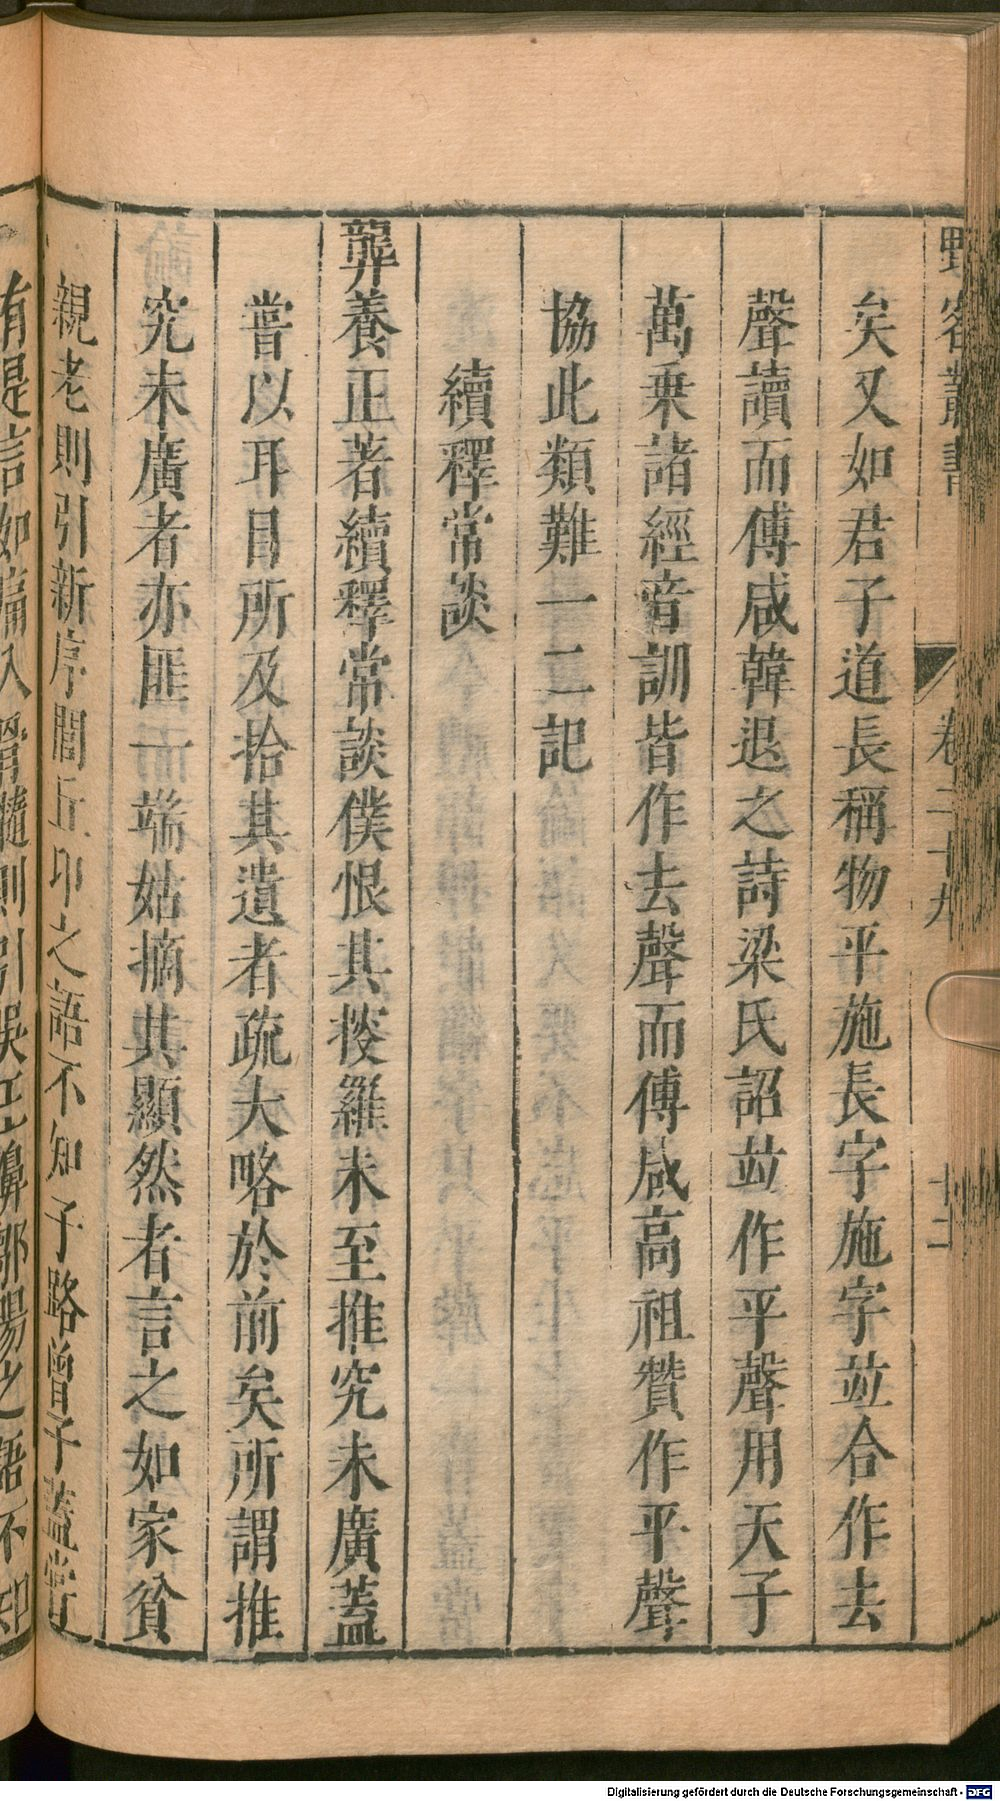 野客叢書 卷二十九 十二
矣又如君子道長稱物平施長字施字竝合作去
聲讀而傅咸韓退之詩梁氏詔竝作平聲用天子
萬乗諸經音訓皆作去聲而傅咸高祖贊作平聲
協此類難一二記
續釋常談
龔養正著續釋常談僕恨其搜羅未至推究未廣蓋
嘗以耳目所及拾其遺者疏大略於前矣所謂推
究未廣者亦匪一端姑摘其顯然者言之如家貧
親老則引新序閭丘卬之語不知子路曾子蓋嘗
有是言如痛入骨髓則引吳王濞鄒陽之語不知
Digitalisierung gefördert durch die Deutsche Forschungsgemeinschaft - DFG